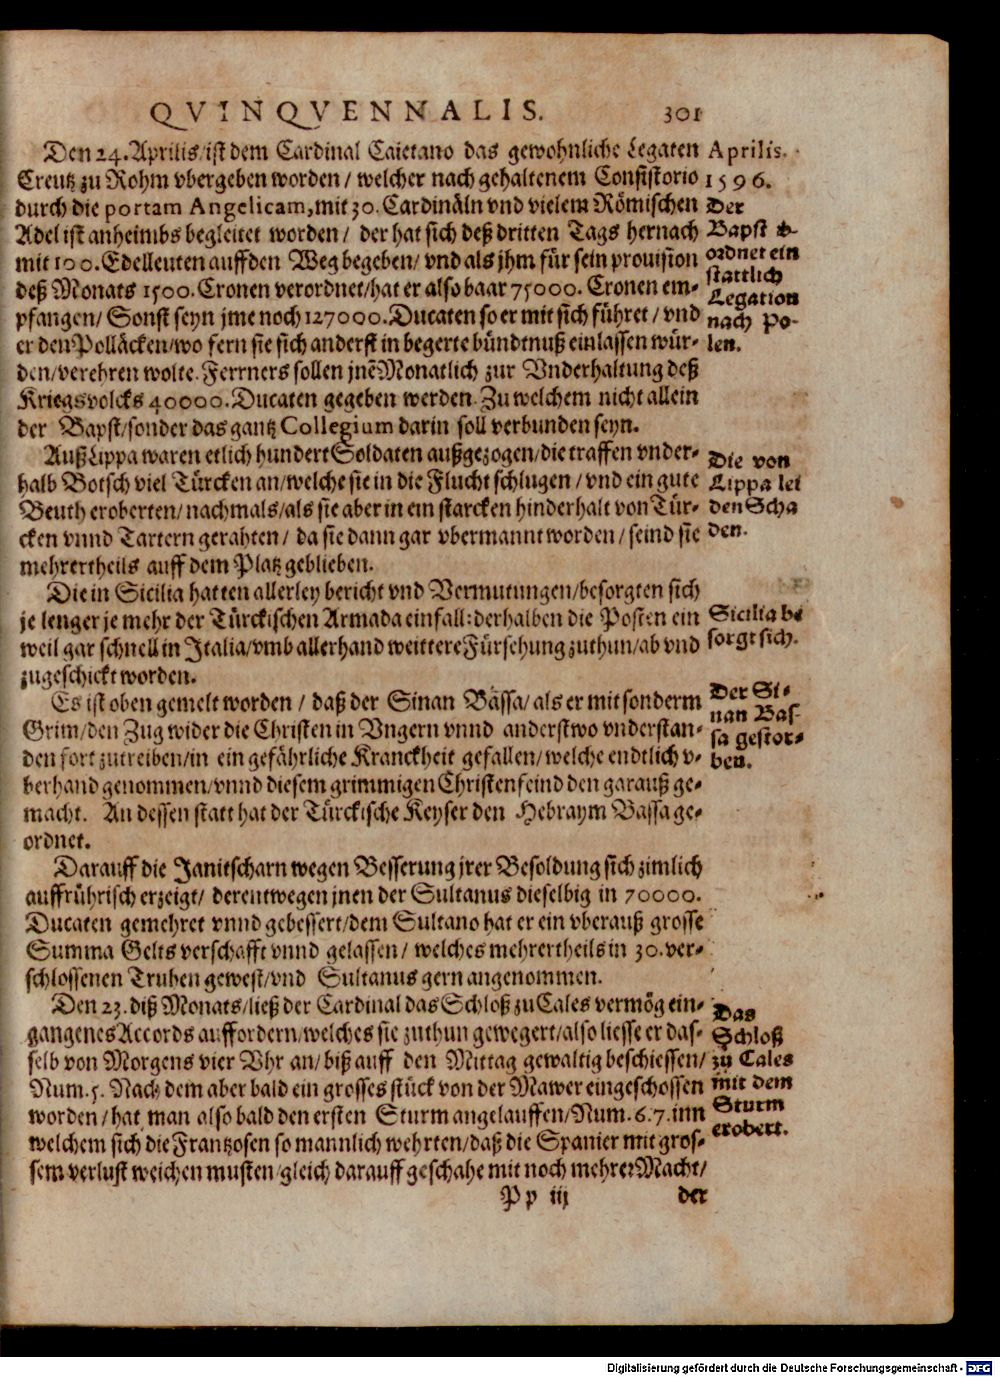 QVINQVENNALIS. 301
Den 24. Aprilis/ist dem Cardinal Caietano das gewohnliche Legaten
Creutz zu Rohm vbergeben worden / welcher nach gehaltenem Consistorio
durch die portam Angelicam, mit 30. Cardinäln vnd vielem Römischen
Adel ist anheimbs begleitet worden / der hat sich deß dritten Tags hernach
mit 100. Edelleuten auff den Weg begeben/ vnd als jhm für sein prouision
deß Monats 1500. Cronen verordnet/hat er also baar 75000. Cronen em-
pfangen/ Sonst seyn jme noch 127000. Ducaten so er mit sich führet / vnd
er den Polläcken/wo fern sie sich anderst in begerte bündtnuß einlassen wür-
den/verehren wolte. Ferrners sollen jnē Monatlich zur Vnderhaltung deß
Kriegsvolcks 40000. Ducaten gegeben werden. Zu welchem nicht allein
der Bapst/sonder das gantz Collegium darin soll verbunden seyn.
Auß Lippa waren etlich hundert Soldaten außgezogen/die traffen vnder-
halb Botsch viel Türcken an/welche sie in die Flucht schlugen / vnd ein gute
Beuth eroberten/nachmals/als sie aber in ein starcken hinderhalt von Tür-
cken vnnd Tartern gerahten / da sie dann gar vbermannt worden / seind sie
mehrertheils auff dem Platz geblieben.
Die in Sicilia hatten allerley bericht vnd Vermutungen/besorgten sich
je lenger je mehr der Türckischen Armada einfall: derhalben die Posten ein
weil gar schnell in Italia/vmb allerhand weittere Fürsehung zuthun/ab vnd
zugeschickt worden.
Es ist oben gemelt worden / daß der Sinan Bassa/ als er mit sonderm
Grim/den Zug wider die Christen in Vngern vnnd anderstwo vnderstan-
den fort zutreiben/in ein gefährliche Kranckheit gefallen/welche endtlich v-
berhand genommen/vnnd diesem grimmigen Christenfeind den garauß ge-
macht. An dessen statt hat der Türckische Keyser den Hebraym Bassa ge-
ordnet.
Darauff die Janitscharn wegen Besserung jrer Besoldung sich zimlich
auffrührisch erzeigt/ derentwegen jnen der Sultanus dieselbig in 70000.
Ducaten gemehret vnnd gebessert/dem Sultano hat er ein vberauß grosse
Summa Gelts verschafft vnnd gelassen / welches mehrertheils in 30. ver-
schlossenen Truhen gewest/vnd Sultanus gern angenommen.
Den 23. diß Monats/ließ der Cardinal das Schloß zu Cales vermög ein-
gangenes Accords auffordern/welches sie zuthun gewegert/also liesse er das-
selb von Morgens vier Vhr an/biß auff den Mittag gewaltig beschiessen/
Num. 5. Nach dem aber bald ein grosses stück von der Mawer eingeschossen
worden / hat man also bald den ersten Sturm angelauffen/Num. 6. 7. inn
welchem sich die Frantzosen so mannlich wehrten/daß die Spanier mit gros-
sem verlust weichen musten/gleich darauff geschahe mit noch mehrer Macht/
Pp iij der
Aprilis.
1596.
Der
Bapst v-
ordnet ein
stattlich
Legation
nach Po-
len.
Die von
Lippa lei
den Scha
den.
Sicilia be
sorgt sich.
Der Si-
nan Bas-
sa gestor-
ben.
Das
Schloß
zu Cales
mit dem
Sturm
erobert.
Digitalisierung gefördert durch die Deutsche Forschungsgemeinschaft - DFG